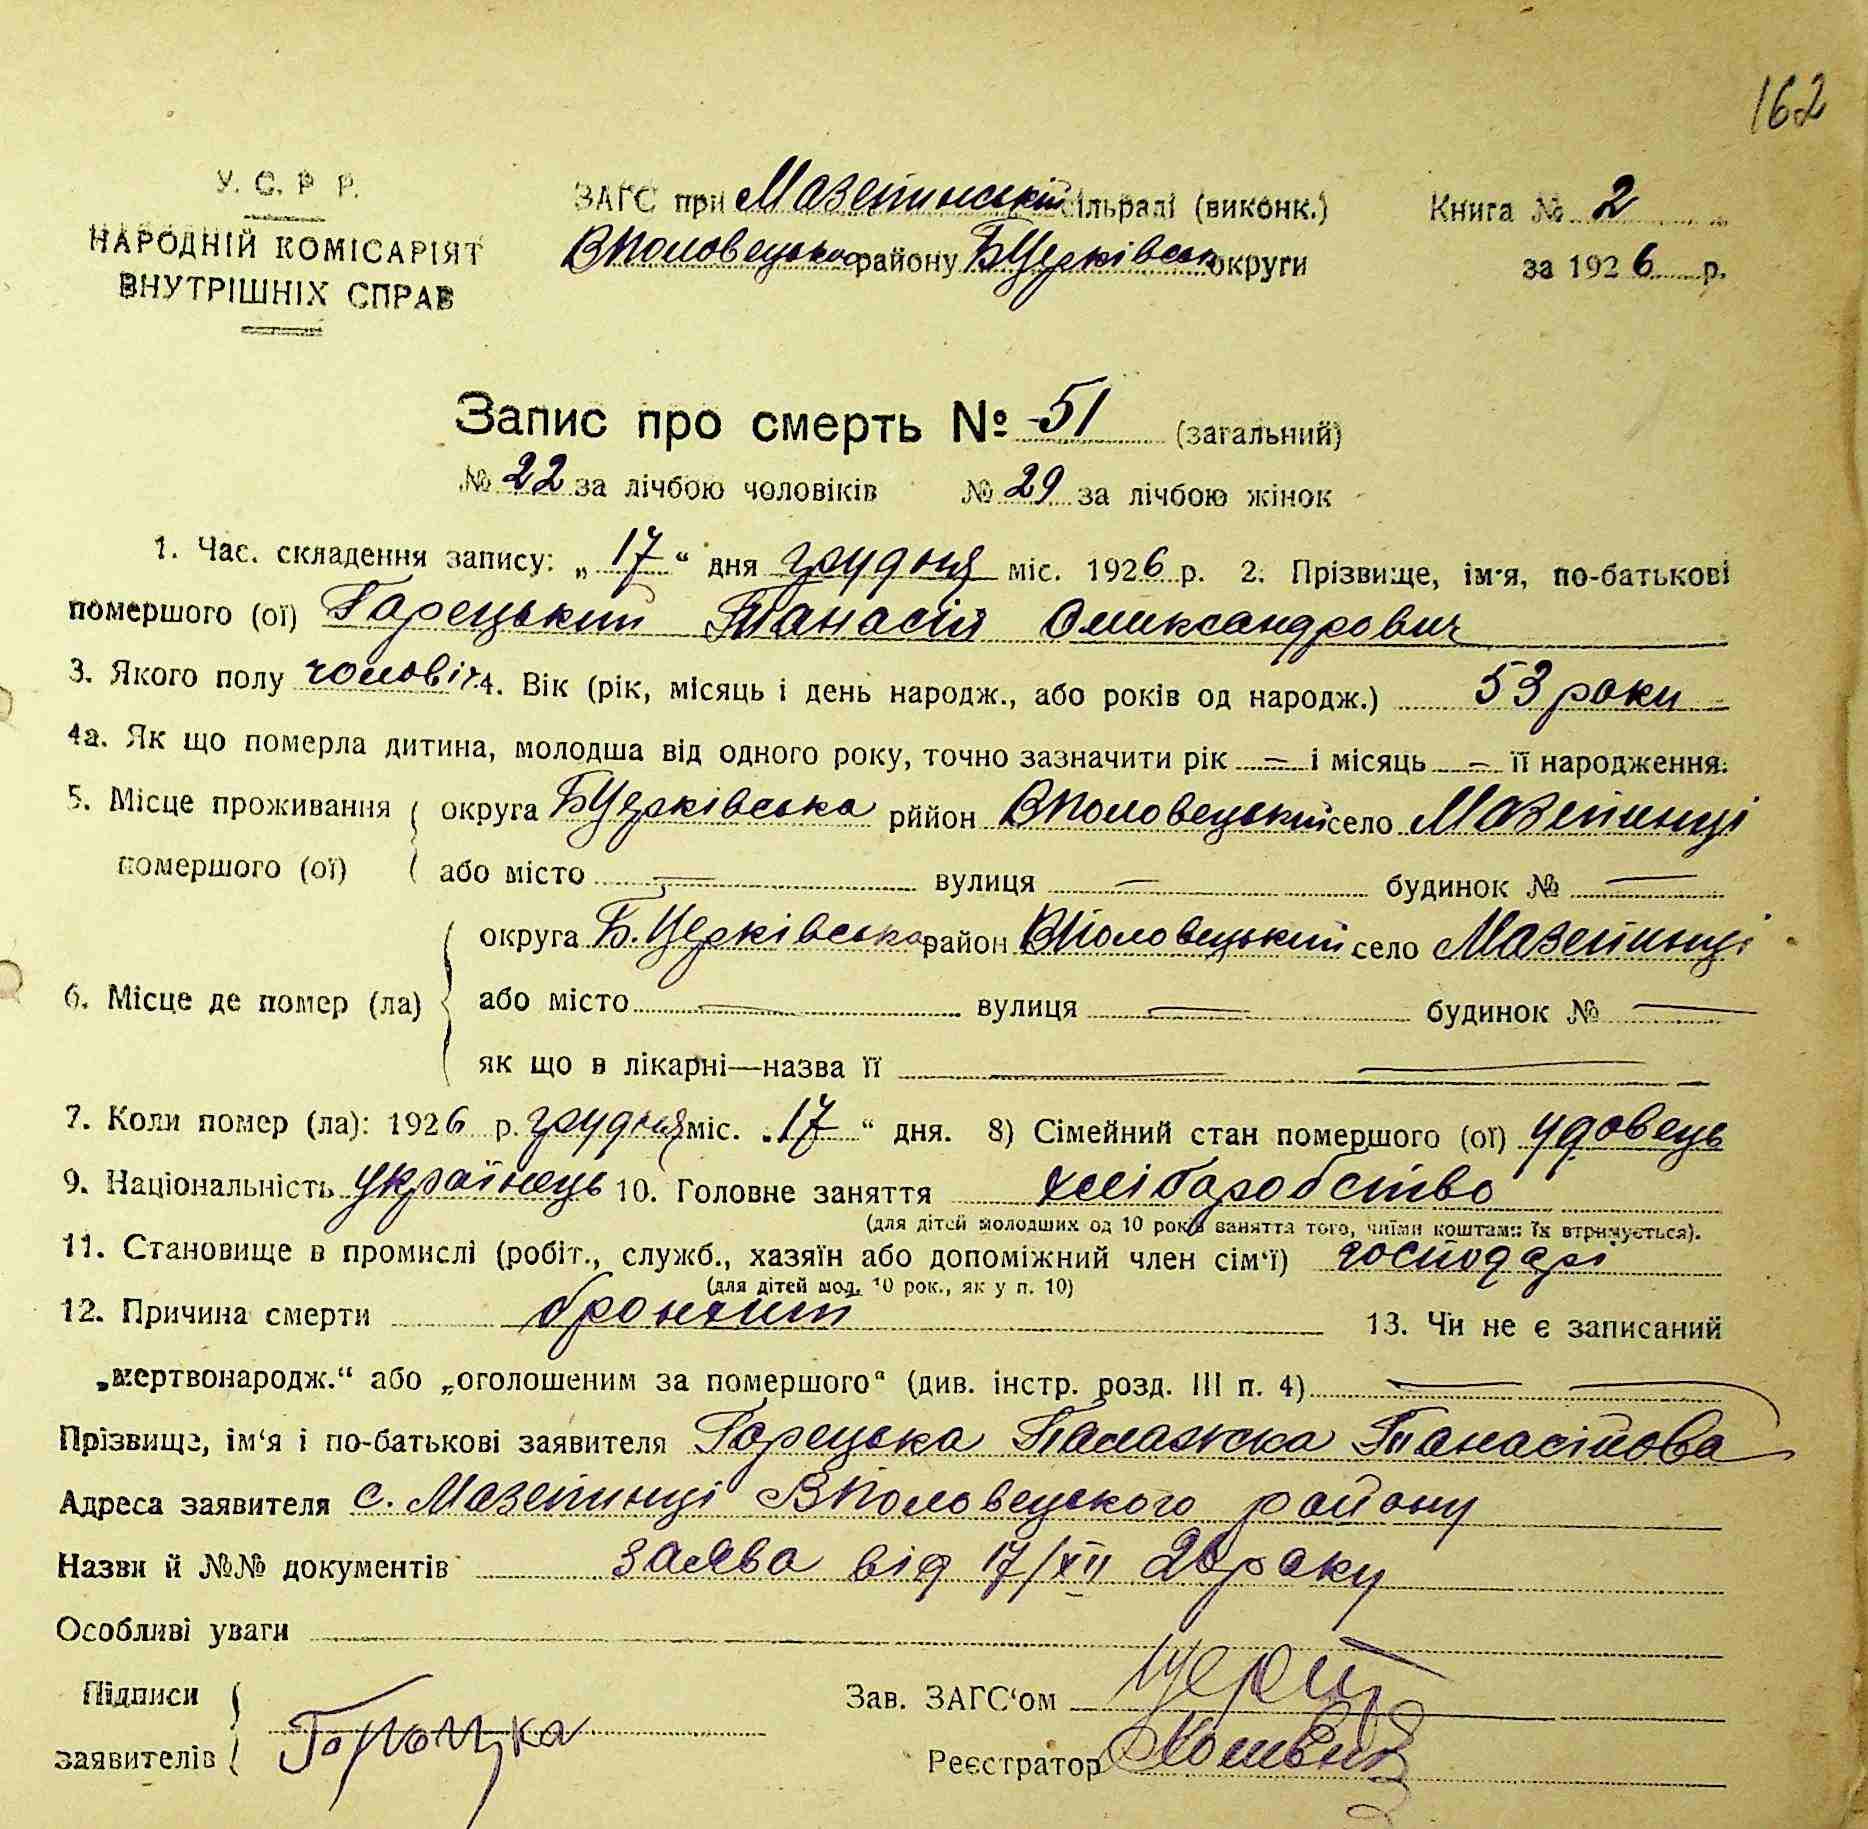 162
У. С. Р Р.
НАРОДНІЙ КОМІСАРІЯТ
ВНУТРІШНІХ СПРАВ
ЗАГС при Мазепинській сільраді (виконк.)
ВПоловецького району БЦерківськ округи
Книга № 2
за 1926 р.
Запис про смерть № 51 (загальний)
№ 22 за лічбою чоловіків № 29 за лічбою жінок
1. Час. складення запису: „17“ дня грудня міс. 1926 р. 2. Прізвище, ім'я, по-батькові
помершого (ої) Гарецький Танасій Олександрович
3. Якого полу чоловіч. 4. Вік (рік, місяць і день народж., або років од народж.) 53 роки
4а. Як що померла дитина, молодша від одного року, точно зазначити рік — і місяць — її народження.
5. Місце проживання округа БЦерківська рййон ВПоловецький село Мазепинці
помершого (ої) або місто — вулиця — будинок № —
округа Б.Церківська район ВПоловецький село Мазепинці
6. Місце де помер (ла) або місто — вулиця — будинок № —
як що в лікарні—назва її —
7. Коли помер (ла): 1926 р. грудня міс. „17“ дня. 8) Сімейний стан помершого (ої) удовець
9. Національність українець 10. Головне заняття хліборобство
(для дітей молодших од 10 років заняття того, чиїми коштами їх втримується).
11. Становище в промислі (робіт., служб., хазяїн або допоміжний член сім'ї) господарі
(для дітей мол. 10 рок., як у п. 10)
12. Причина смерти бронхит 13. Чи не є записаний
„мертвонародж.“ або „оголошеним за помершого“ (див. інстр. розд. III п. 4) —
Прізвище, ім'я і по-батькові заявителя Гарецька Палажка Танасійова
Адреса заявителя с. Мазепинці ВПоловецького району
Назви й №№ документів заява від 17/XII 26 року
Особливі уваги
Підписи
заявителів
Зав. ЗАГС'ом
Реєстратор